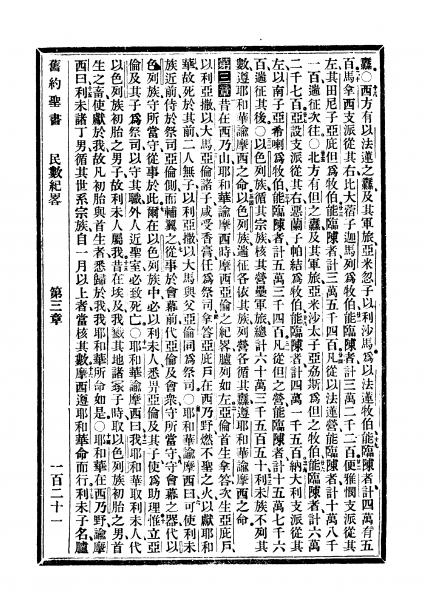 纛○西方有以法蓮之纛及其軍旅亞米忽子以利沙馬爲以法蓮牧伯能臨陳者計四萬有五
百馬拿西支派從其右比大溣子迦馬列爲牧伯能臨陳者計三萬二千二百便雅憫支派從其
左其田尼子庇但爲牧伯能臨陳者計三萬五千四百凡從以法蓮營能臨陳者計十萬八千
一百遄征次往○北方有但之纛及其軍旅亞米沙太子亞勗斯爲但之牧伯能臨陳者計六萬
二千七百亞設支派從其右惡蘭子帕結爲牧伯能臨陳者計四萬一千五百納大利支派從其
左以南子亞希喇爲牧伯能臨陳者計五萬三千四百凡從但之營能臨陳者計十五萬七千六
百遄征其後○以色列族循其宗族核其營壘軍旅總計六十萬三千五百五十利未族不列其
數遵耶和華諭摩西之命以色列族遄征各依其族列營各循其纛遵耶和華諭摩西之命
第三章昔在西乃山耶和華諭摩西時摩西亞倫之紀畧臚列如左亞倫首生拿答次生亞庇戶
以利亞撒以大馬亞倫諸子咸受香膏任爲祭司拿答亞庇戶在西乃野燃不聖之火以獻耶和
華故死於其前二人無子以利亞撒以大馬與父亞倫同爲祭司○耶和華諭摩西曰可使利未
族近前侍於祭司亞倫側而輔翼之從事於會幕前代亞倫及會衆守所當守守會幕之器代以
色列族守所當守從事於此爾在以色列族中必以利未人悉畀亞倫及其子使爲助理惟立亞
倫及其子爲祭司以守其職外人近聖室必致死亡○耶和華諭摩西曰我耶和華取利未人代
以色列族初胎之男子故利未人屬我昔在埃及我擊其地諸冢子時取以色列族初胎之男首
生之畜使獻於我故凡初胎與首生者悉歸於我我耶和華所命如是○耶和華在西乃野諭摩
西曰利未諸丁男循其世系宗族自一月以上者當核其數摩西遵耶和華命而行利未子名臚
舊約聖書 民數紀畧 第三章 一百二十一